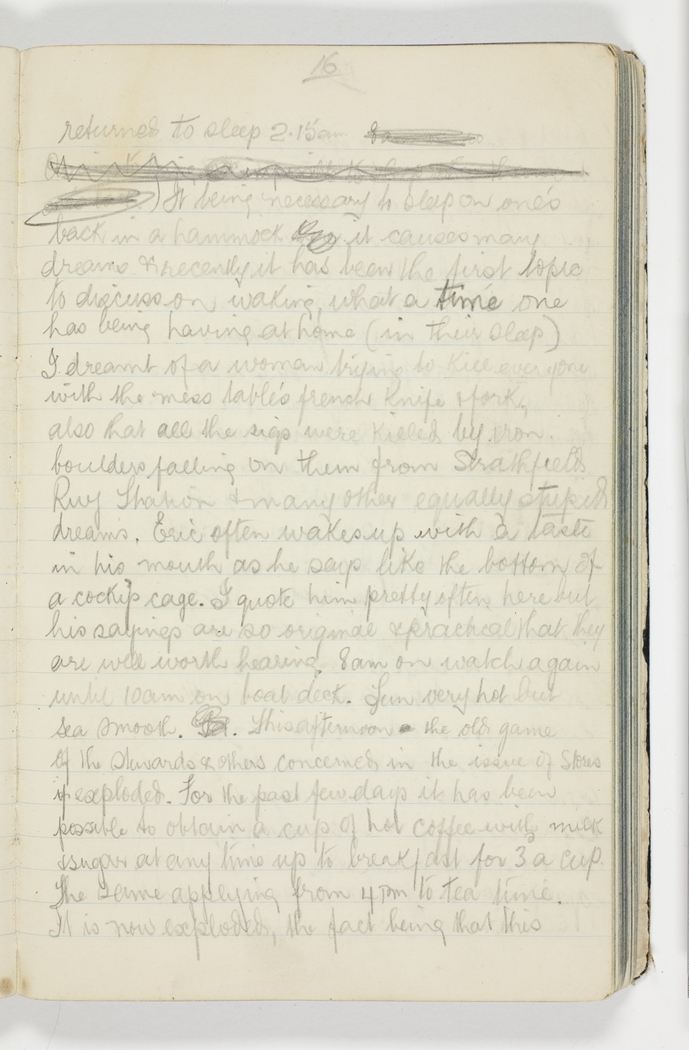 16
returned to sleep 2.15am
It being necessary to sleep on one's
back in a hammock it causes many
dreams & recently it has been the first topic
to discuss on waking, what a time one
has being having at home (in their sleep)
I dreamt of a woman trying to kill everyone
with the mess table's french knife & fork,
also that all the sigs were killed by iron
boulders falling on them from Strathfield
Rwy Station & many other equally stupid
dreams. Eric often wakes up with a taste
in his mouth as he says like the bottom of
a cocky's cage. I quote him pretty often here but
his sayings are so original & practical that they
are well worth hearing. 8am on watch again
until 10am on boat deck. Sun very hot but
sea smooth. This afternoon the old game
of the stewards & others concerned in the issue of stores
is exploded. For the past few days it has been
possible to obtain a cup of hot coffee with milk
& sugar at any time up to breakfast for 3d a cup.
The same applying from 4pm to tea time.
It is now exploded, the fact being that this